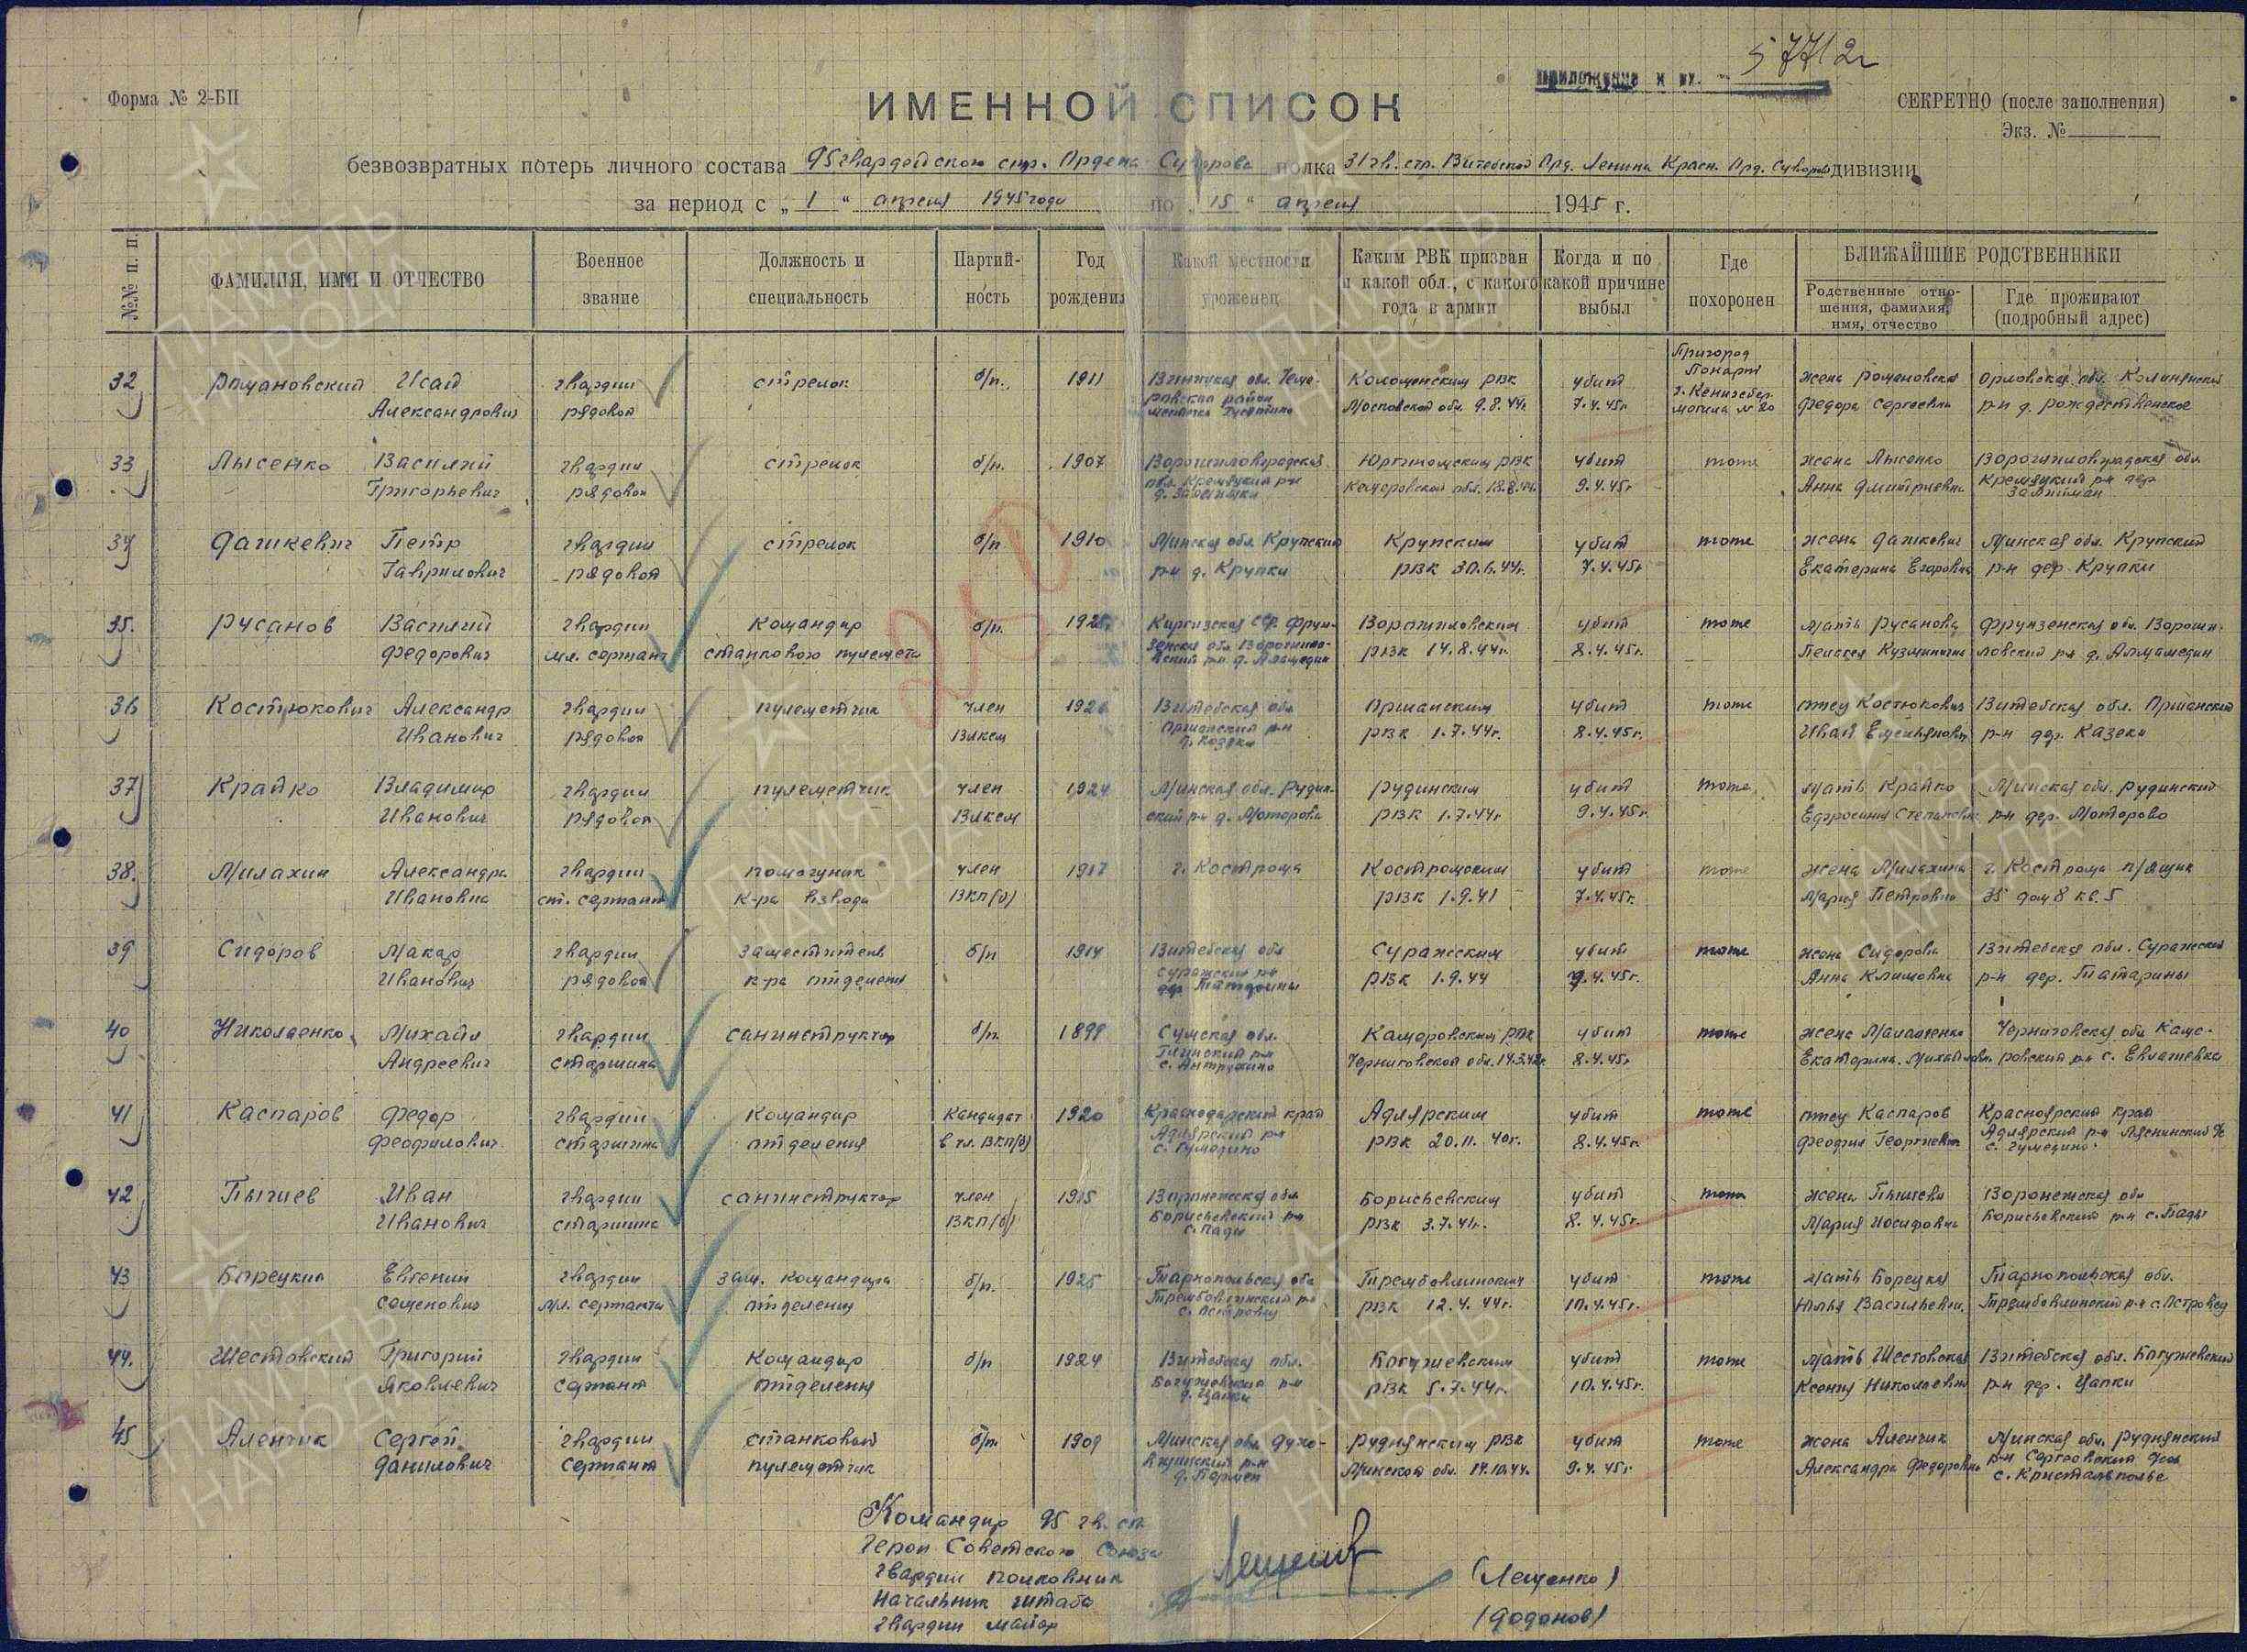 приложение к вх. 57712
Форма № 2-БП
ИМЕННОЙ СПИСОК
СЕКРЕТНО (после заполнения)
Экз. №
безвозвратных потерь личного состава 95 гвардейского стр. Ордена Суворова полка 31 гв. стр. Витебской Орд. Ленина Красн. Орд. Суворова дивизии
за период с „1“ апреля 1945 года по „15“ апреля 1945 г.
№№ п. п.
ФАМИЛИЯ, ИМЯ И ОТЧЕСТВО
Военное звание
Должность и специальность
Партийность
Год рождения
Какой местности уроженец
Каким РВК призван и какой обл., с какого года в армии
Когда и по какой причине выбыл
Где похоронен
БЛИЖАЙШИЕ РОДСТВЕННИКИ
Родственные отношения, фамилия, имя, отчество
Где проживают (подробный адрес)
250
32 Романовский Исай гвардии стрелок б/п. 1911 Винницкая обл. Коломенским РВК убит Пригород Понарт жена Романовская Орловская обл.
Александрович рядовой район местечко Московской обл. 9.8.44г. 7.4.45г. г. Кенигсберг могила № 20 Федора Сергеевна р-н д. Рождественское
33 Лысенко Василий гвардии стрелок б/п. 1907 Ворошиловградская Юргинским РВК убит тоже жена Лысенко Ворошиловградская обл.
Григорьевич рядовой обл. р-н Кемеровской обл. 9.4.45г Анна Дмитриевна р-н дер
34 Дашкевич Петр гвардии стрелок б/п 1910 Минская обл. Крупский Крупским убит тоже жена Дашкевич Минская обл. Крупский
Гаврилович рядовой р-н д. Крупки РВК 30.6.44г. 7.4.45г Екатерина Егоровна р-н дер. Крупки
35. Русанов Василий гвардии Командир б/п. Киргизская ССР Фрун- Ворошиловским убит тоже мать Русанова Фрунзенская обл. Вороши-
Федорович мл. сержант станкового пулемета зенская обл. Ворошиловский р-н д. Аламедин РВК 14.8.44г. 8.4.45г. Пелагея Кузминична ловский р-н д. Аламедин
36 Костюкович Александр гвардии пулеметчик член 1926 Витебская обл Оршанским убит тоже отец Костюкович Витебская обл. Оршанский
Иванович рядовой ВЛКСМ Оршанский р-н д. Козеки РВК 1.7.44г. 8.4.45г. Иван Емельянович р-н дер. Казеки
37 Крайко Владимир гвардии пулеметчик член 1924 Минская обл. Рудин- Рудинским убит тоже мать Крайко Минская обл. Рудинский
Иванович рядовой ВЛКСМ ский р-н д. Моторово РВК 1.7.44г 9.4.45г. Ефросиния Степановна р-н дер. Моторово
38. Милахин Александра гвардии помощник член 1917 г. Кострома Костромским убит тоже жена Милахина г. Кострома п/ящик
Ивановна ст. сержант к-ра взвода ВКП(б) РВК 1.9.41 7.4.45г. Мария Петровна 35 дом 8 кв. 5
39 Сидоров Макар гвардии заместитель б/п 1914 Витебская обл Суражским убит тоже жена Сидорова Витебская обл. Суражский
Иванович рядовой к-ра отделения Суражский р-н дер Татарины РВК 1.9.44 9.4.45г. Анна Климовна р-н дер. Татарины
40 Николаенко Михаил гвардии санинструктор б/п. 1899 Сумская обл. Камеровским РВК убит тоже жена Екатерина Черниговская обл. Каме-
Андреевич старшина р-н Черниговской обл. 8.4.45г. Михайловн. ровский р-н с. Евлашевка
41 Каспаров Федор гвардии Командир Кандидат 1920 Краснодарский край Адлярским убит тоже отец Каспаров Красноярский край
Феофилович старшина отделения в чл. ВКП(б) Адлярский р-н РВК 20.11.40г. 8.4.45г. Феофил Георгиевич Адлярский р-н
42 Пычиев Иван гвардии санинструктор член 1915 Воронежская обл Борисьевским убит тоже жена Воронежская обл
Иванович старшина ВКП(б) Борисьевский р-н с. Пады РВК 3.7.41г. 8.4.45г. Мария Иосифовна Борисьевский р-н с. Пады
43 Борецкий Евгений гвардии зам. командира б/п. 1925 Тарнопольская обл Трембовлинским убит тоже мать Борецкая Тарнопольская обл.
Семенович мл. сержант отделения Трембовлинский р-н с. Островец РВК 12.4.44г. 10.4.45г. Юлья Васильевн. Трембовлинский р-н с. Островец
44. Шестовский Григорий гвардии Командир б/п 1924 Витебская обл. Богушевским убит тоже мать Шестовская Витебская обл. Богушевский
Яковлевич сержант отделения Богушевский р-н д. Цапки РВК 5.7.44г. 10.4.45г. Ксения Николаевна р-н дер. Цапки
45 Аленчик Сергей гвардии станковый б/п. 1909 Минская обл. Руднянским РВК убит тоже жена Аленчик Минская обл. Руднянский
Данилович сержант пулеметчик р-н Минской обл. 14.10.44. 9.4.45г Александра Федоровна р-н с. Кристалполье
Командир 95 гв. сп
Герой Советского Союза
гвардии полковник (Лещенко)
Начальник штаба
гвардии майор (Додонов)
ПАМЯТЬ НАРОДА